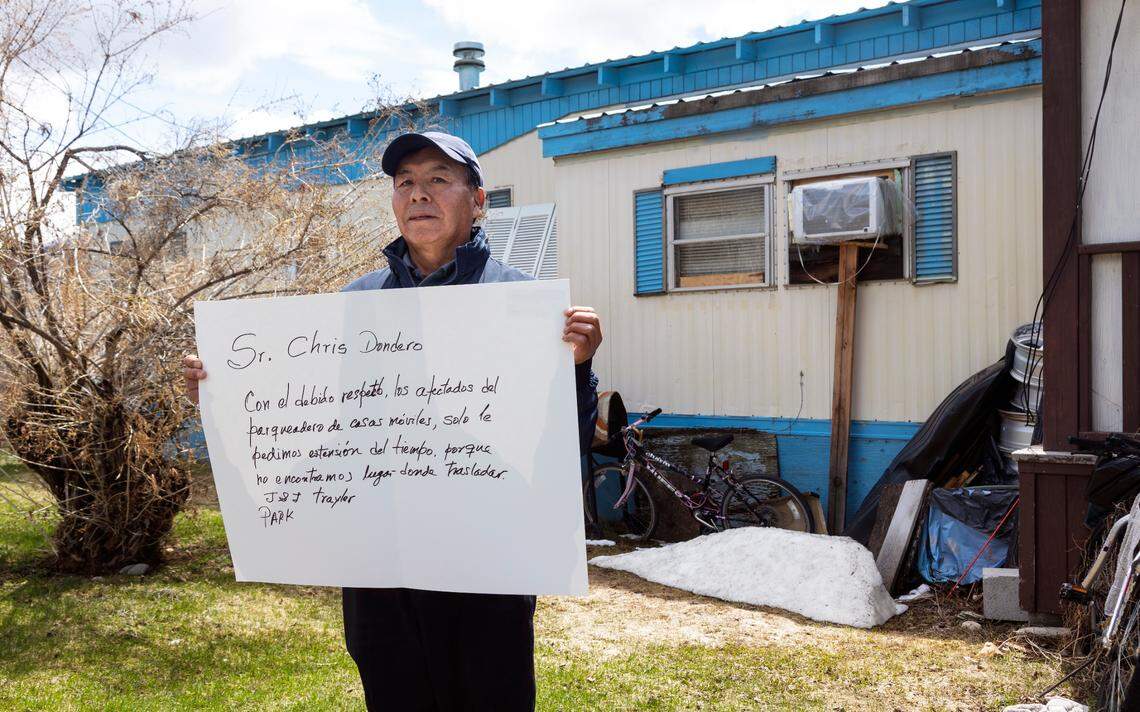 Sr. Chris Dondero
Con el debido respeto, los afectados del
parqueadero de casas móviles, solo le
pedimos extensión del tiempo, porque
no encontramos lugar donde trasladar.
J&J trayler
PARK